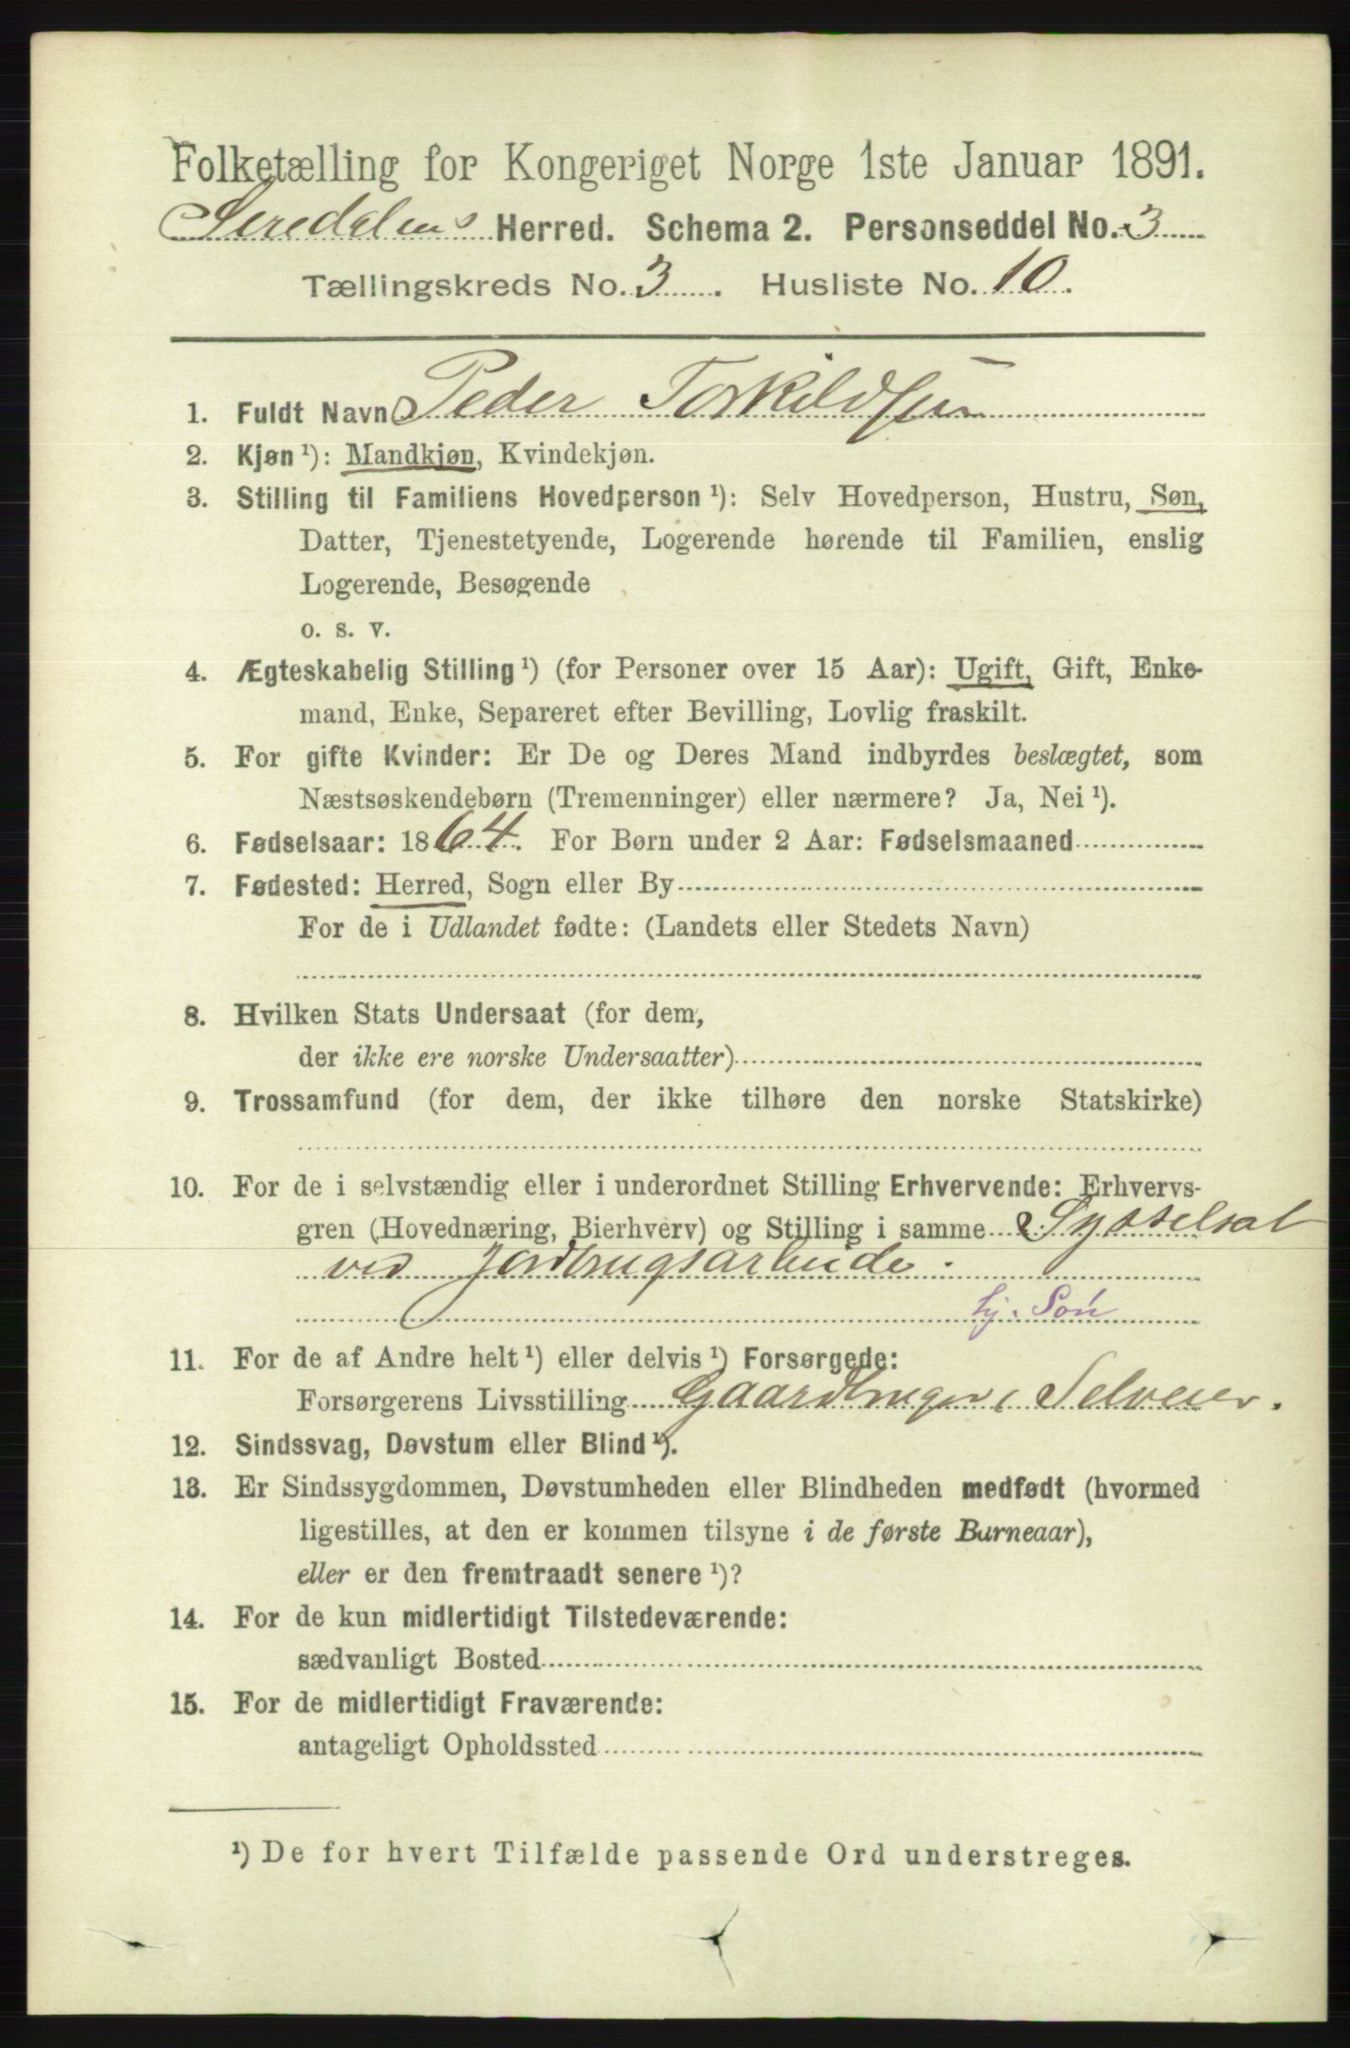 Folketælling for Kongeriget Norge 1ste Januar 1891.
Siredalens Herred. Schema 2. Personseddel No. 3
Tællingskreds No. 3. Husliste No. 10.
1. Fuldt Navn Peder Torkildsen
2. Kjøn ¹): Mandkjøn, Kvindekjøn.
3. Stilling til Familiens Hovedperson ¹): Selv Hovedperson, Hustru, Søn,
Datter, Tjenestetyende, Logerende hørende til Familien, enslig
Logerende, Besøgende
o. s. v.
4. Ægteskabelig Stilling ¹) (for Personer over 15 Aar): Ugift, Gift, Enke-
mand, Enke, Separeret efter Bevilling, Lovlig fraskilt.
5. For gifte Kvinder: Er De og Deres Mand indbyrdes beslægtet, som
Næstsøskendebørn (Tremenninger) eller nærmere? Ja, Nei ¹).
6. Fødselsaar: 1864. For Børn under 2 Aar: Fødselsmaaned
7. Fødested: Herred, Sogn eller By
For de i Udlandet fødte: (Landets eller Stedets Navn)
8. Hvilken Stats Undersaat (for dem,
der ikke ere norske Undersaatter)
9. Trossamfund (for dem, der ikke tilhøre den norske Statskirke)
10. For de i selvstændig eller i underordnet Stilling Erhvervende: Erhvervs-
gren (Hovednæring, Bierhverv) og Stilling i samme Sysselsat
ved Jordbrugsarbeide.
hj. Søn
11. For de af Andre helt ¹) eller delvis ¹) Forsørgede:
Forsørgerens Livsstilling Gaardbruger, Selveier.
12. Sindssvag, Døvstum eller Blind ¹).
13. Er Sindssygdommen, Døvstumheden eller Blindheden medfødt (hvormed
ligestilles, at den er kommen tilsyne i de første Barneaar),
eller er den fremtraadt senere ¹)?
14. For de kun midlertidigt Tilstedeværende:
sædvanligt Bosted
15. For de midlertidigt Fraværende:
antageligt Opholdssted
¹) De for hvert Tilfælde passende Ord understreges.